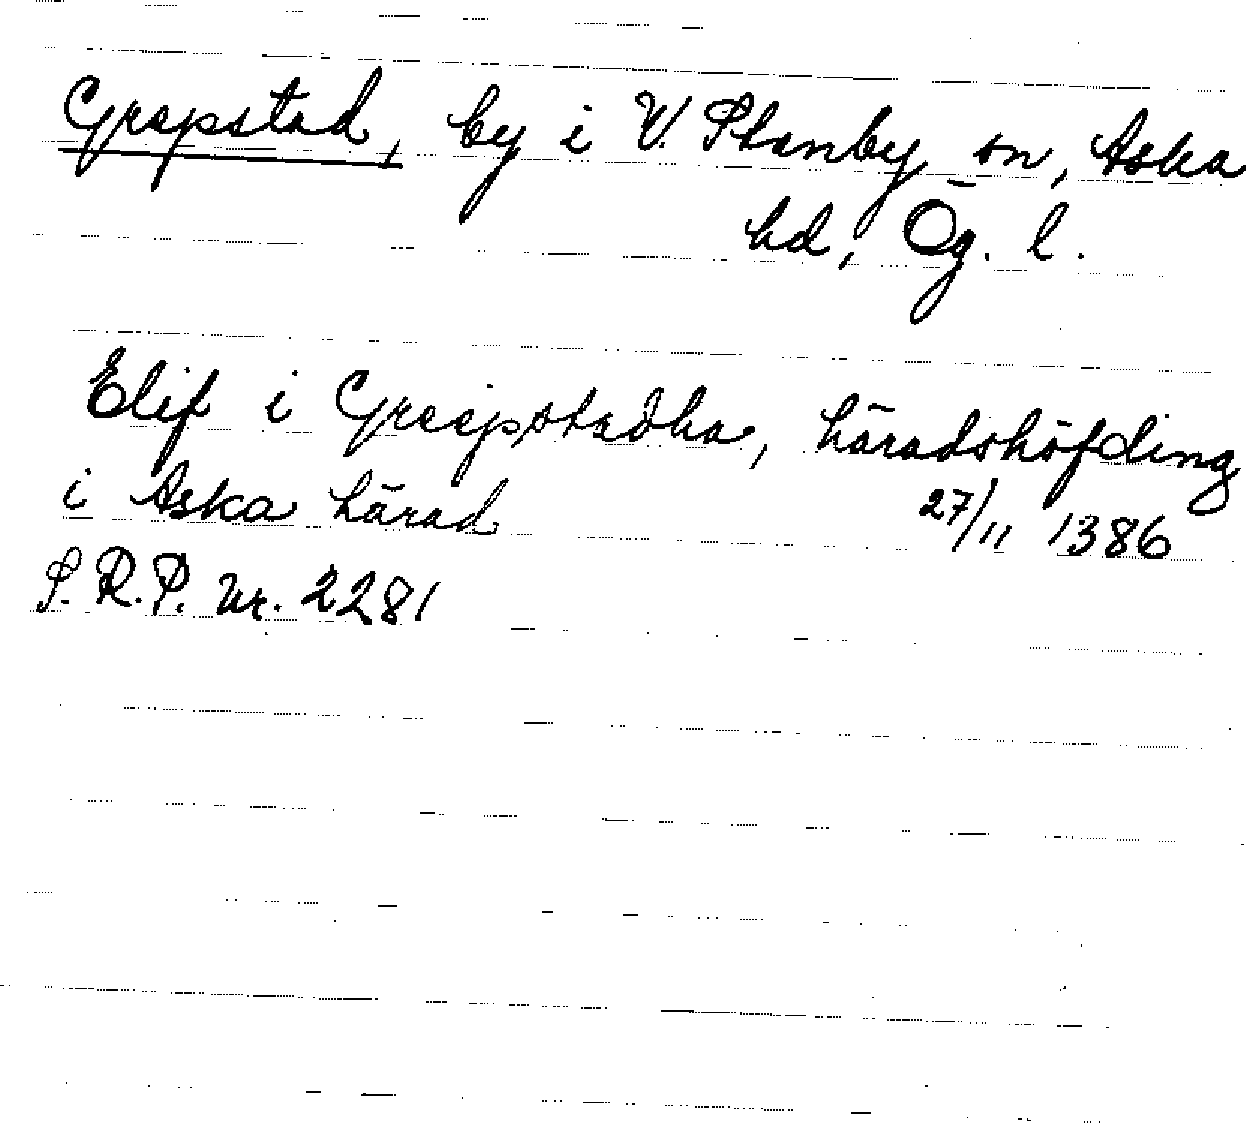 Grepstad, by i V. Stenby sn, Aska
hd, Ög. l.
Elif i Greepstadha, häradshöfding
i Aska härad 27/11 1386
S.R.P. nr. 2281